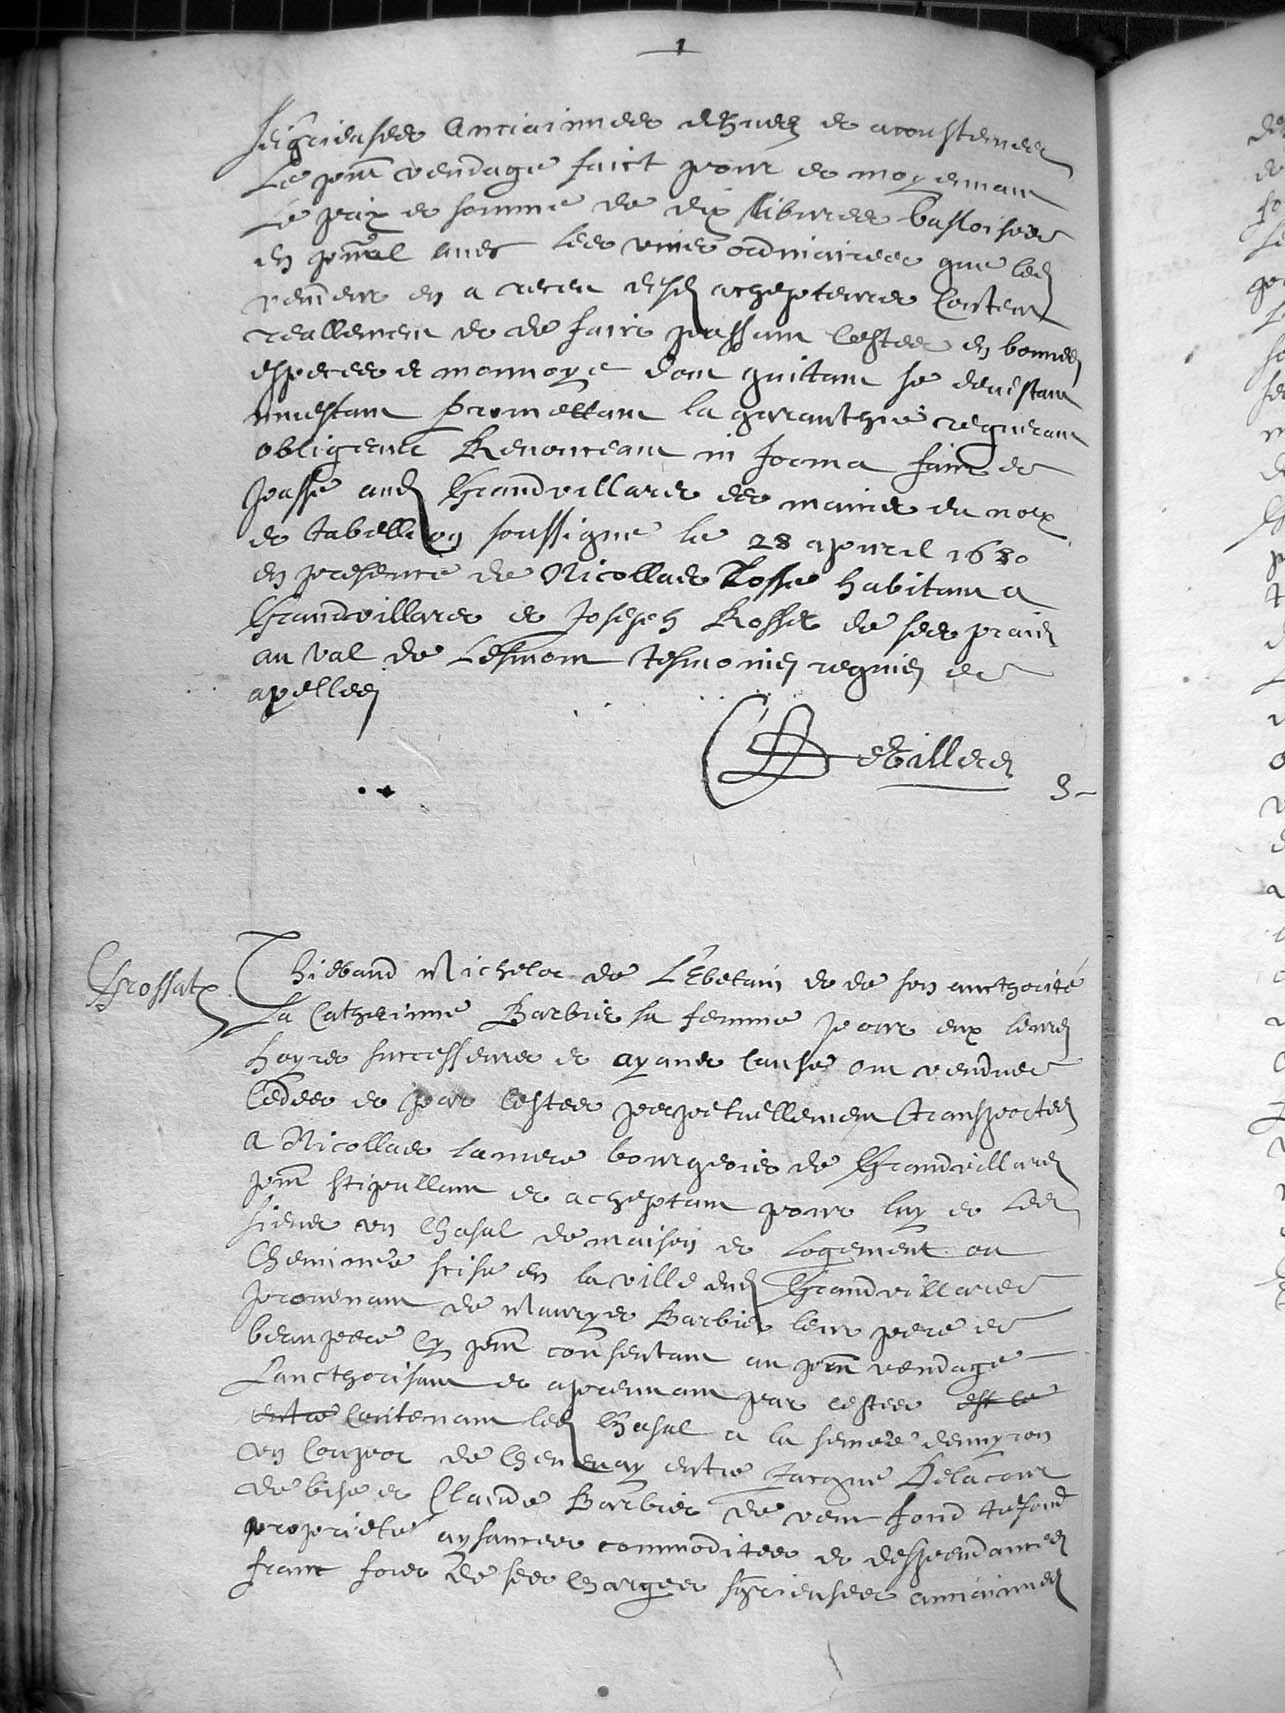 1
seigrieuses Anciainnes dehues et acoustumees
Le pnt vendage faict pour et moyennant
Le prix et somme de dix libvres basloises
en pncpal avec les vins ordinaires que led
vendeur en a receu desd achepteures contens
reallement et de faict passant cestes en bonnes
especes et monnoye dont quittant se devestant
investant promettant la garanthie requerant
obligeant Renonceant in forma faict et
passé aud Grandvillars es mains du nore
et tabellion soussigné le 28 apvril 1680
en presence de Nicollas Josse habitant a
Grandvillars et Joseph Rosse de ses
au val de Lesmont tesmoings requis et
apelles
DeVillers
Grossatx
Thiebaud Michelot de L'Ebetain et de son aucthorité
La Catherinne Barbier sa femme pour eux leurs
hoyres successeures et ayans cause ont vendues
cedees et par cestes perpetuellement transportees
A Nicollas Lamere bourgeois de Grandvillars
pnt stipullant et acheptant pour luy et les
siens un Chasal de maison et logement ou
Cheminée scise en la ville dud Grandvillars
provenant de Mauryes Barbier leur pere et
beaupere Cy pnt consentant au pnt vendage
L'aucthorisant et apreuvant par cestes est le
entre Contenant led Chasal a la semée denvyron
un Coupot de Chenevay entre Jacque Delacour
de bise et Claude Barbier de vent fond tresfond
proprieté aysances commodites et despendances
franc fors de ses charges sgrieuses anciainnes